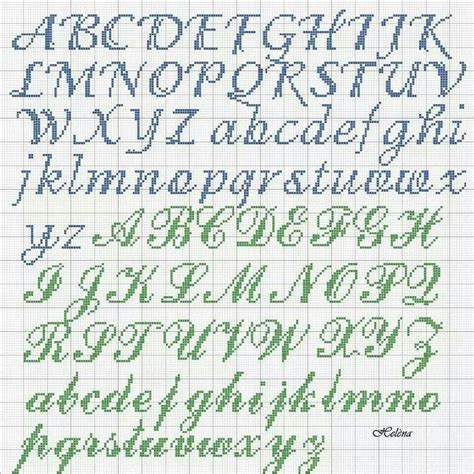 ABCDEFGHIJK
LMNOPQRSTUV
WXYZ abcdefghi
jklmnopqrstuvwx
yz ABCDEFGH
IJKLMNOPQ
RSTUVWXYZ
abcdefghijklmno
pqrstuvwxyz
Helèna